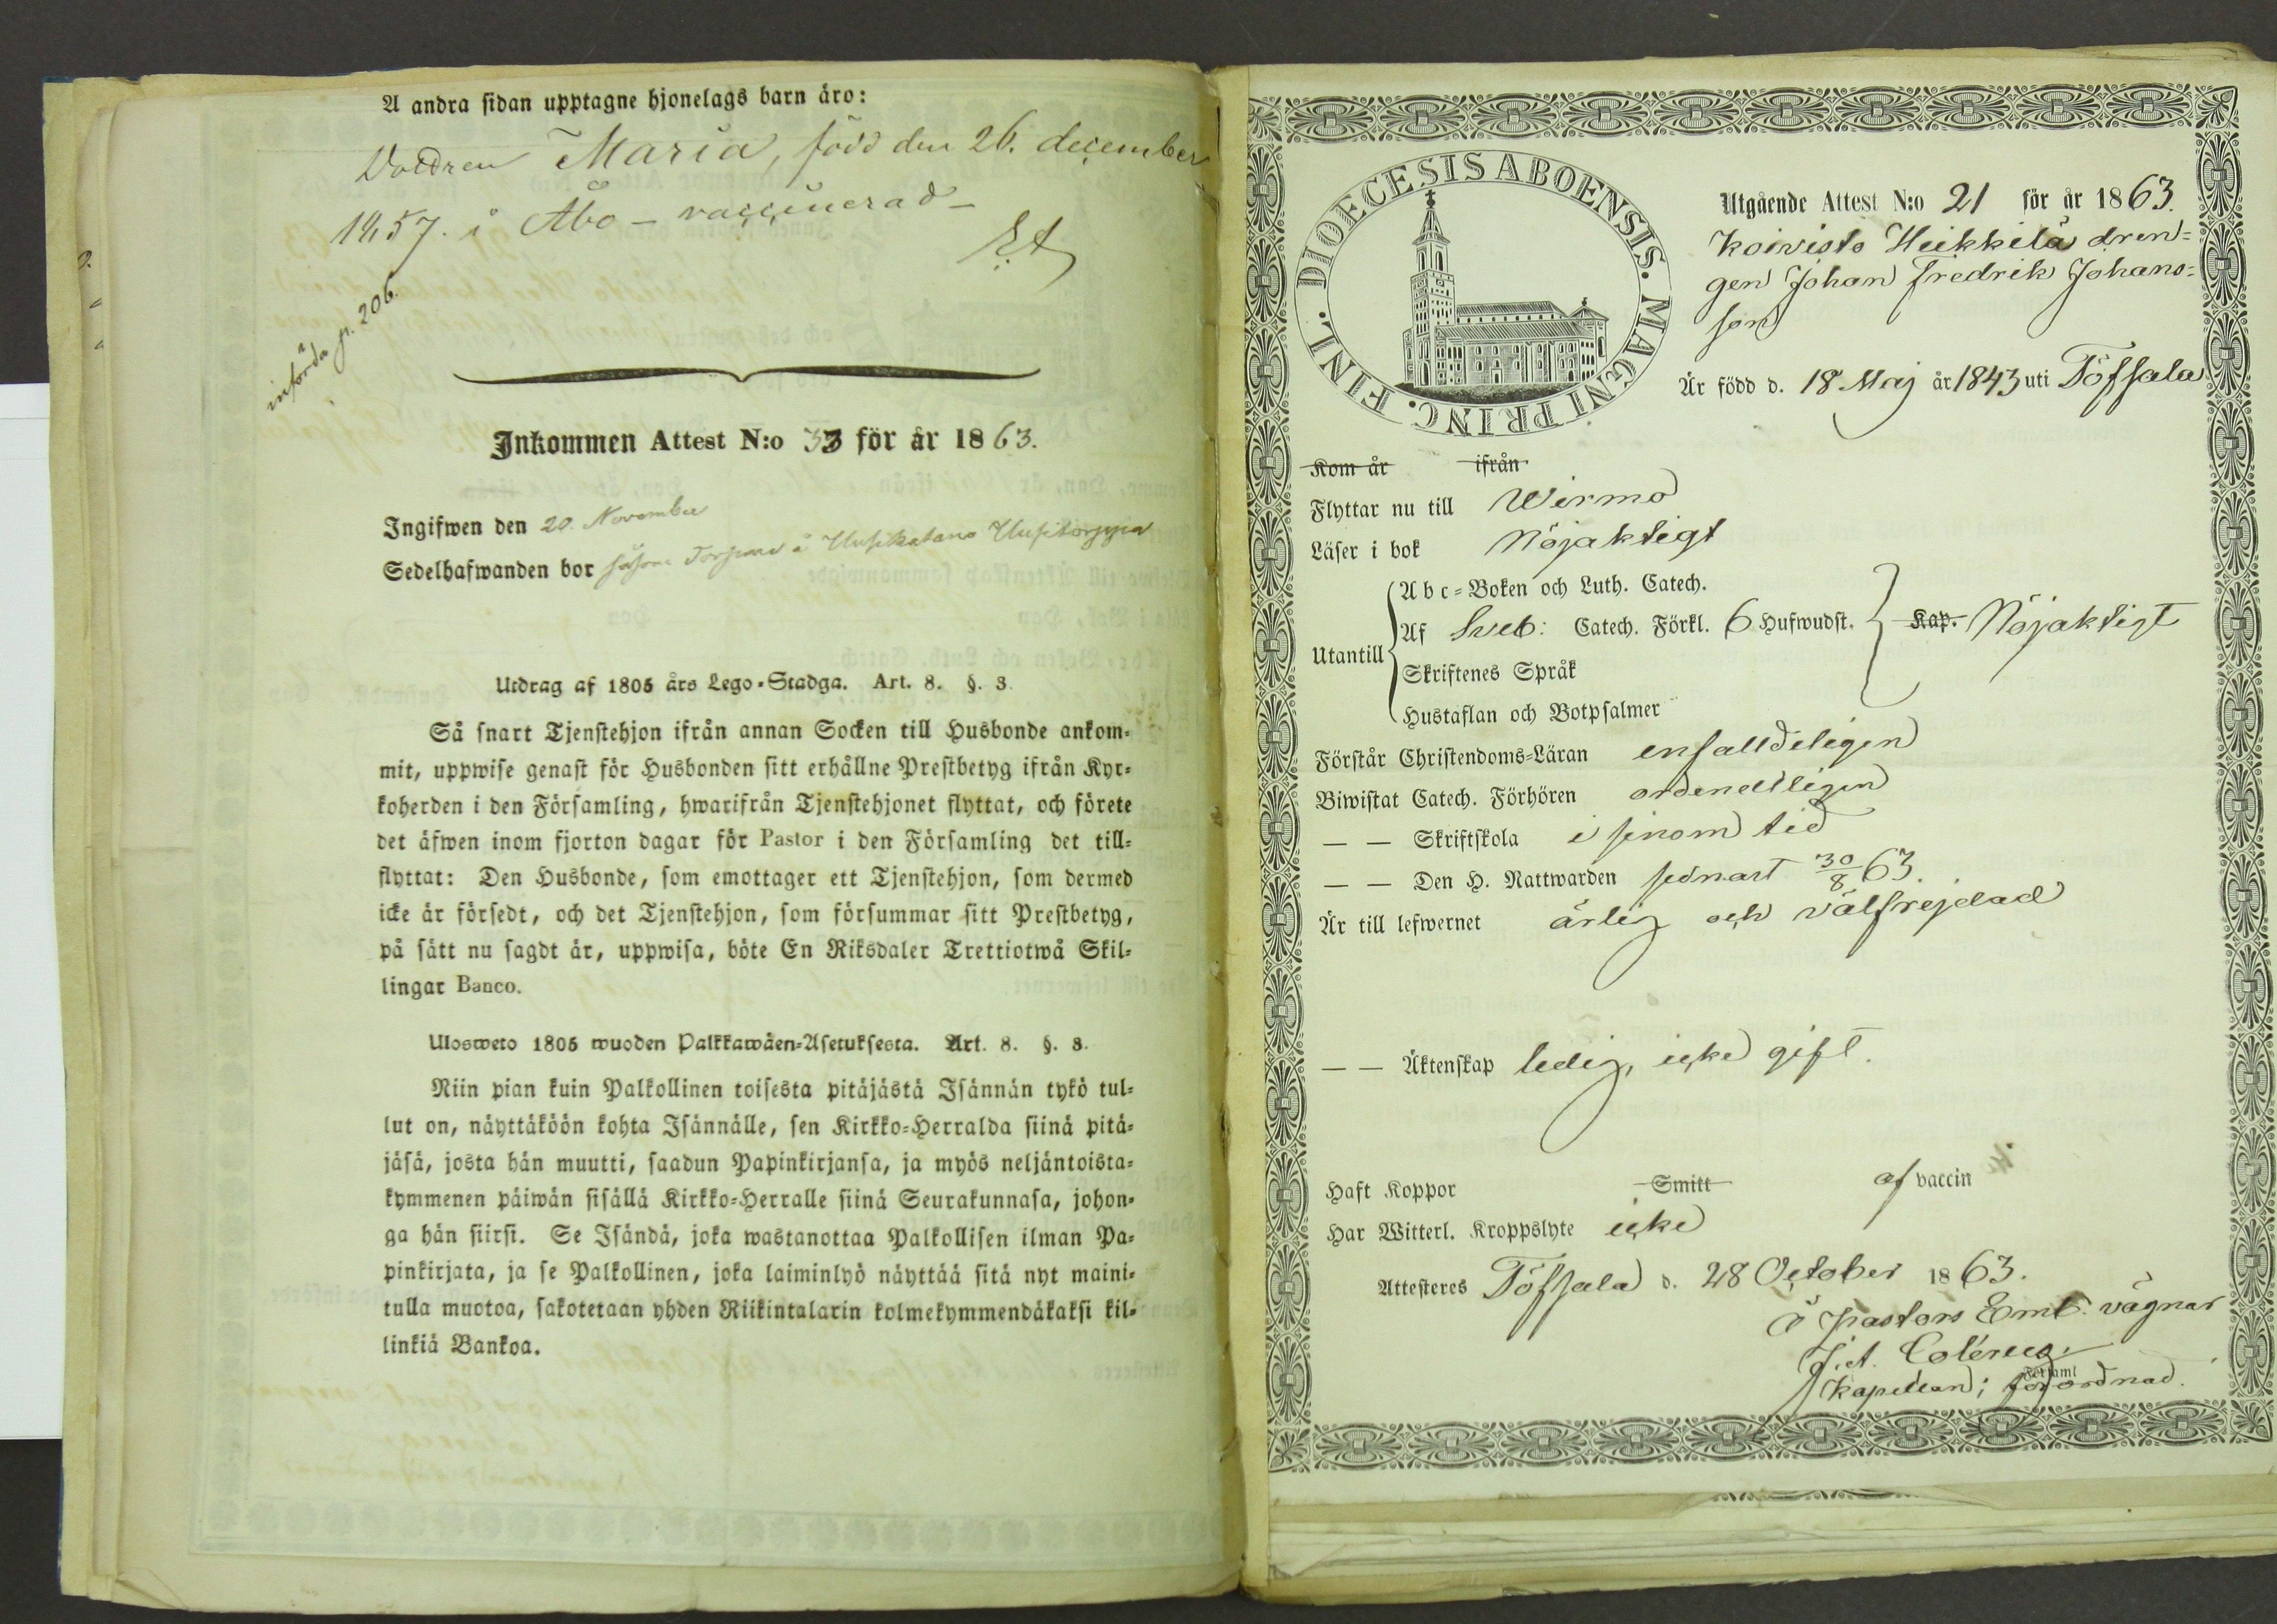 A andra sidan upptagne hjonelags barn äro:
Maria, född den 26. december
1857. i Åbo – vaccinerad –
införda p. 206.
Inkommen Attest N:o 33 för år 1863.
Ingifwen den 20. November
Sedelhafwanden bor såsom Torpare å
Utdrag af 1805 års Lego-Stadga. Art. 8. §. 3.
Så snart Tjenstehjon ifrån annan Socken till Husbonde ankom-
mit, uppwise genast för Husbonden sitt erhållne Prestbetyg ifrån Kyr-
koherden i den Församling, hwarifrån Tjenstehjonet flyttat, och förete
det äfwen inom fjorton dagar för Pastor i den Församling det till-
flyttat: Den Husbonde, som emottager ett Tjenstehjon, som dermed
icke är försedt, och det Tjenstehjon, som försummar sitt Prestbetyg,
på sätt nu sagdt är, uppwisa, böte En Riksdaler Trettiotwå Skil-
lingar Banco.
Ulosweto 1805 wuoden Palkkawäen-Asetuksesta. Art. 8. §. 3.
Niin pian kuin Palkollinen toisesta pitäjästä Isännän tykö tul-
lut on, näyttäköön kohta Isännälle, sen Kirkko-Herralda siinä pitä-
jäsä, josta hän muutti, saadun Papinkirjansa, ja myös neljäntoista-
kymmenen päiwän sisällä Kirkko-Herralle siinä Seurakunnasa, johon-
ga hän siirsi. Se Isändä, joka wastanottaa Palkollisen ilman Pa-
pinkirjata, ja se Palkollinen, joka laiminlyö näyttää sitä nyt maini-
tulla muotoa, sakotetaan yhden Riikintalarin kolmekymmendäkaksi kil-
linkiä Bankoa.
DIOECESIS ABOENSIS. MAGNI PRINC. FINL.
Utgående Attest N:o 21 för år 1863.
Koivisto Heikkilä dren-
gen Johan Fredrik Johans-
son
Är född d. 18 Maj år 1843 uti Töfsala
Kom år ifrån
Flyttar nu till Wirmo
Läser i bok Nöjaktigt
Abc-Boken och Luth. Catech.
Utantill Af Sveb: Catech. Förkl. 6 Hufwudst. Kap. Nöjaktigt
Skriftenes Språk
Hustaflan och Botpsalmer
Förstår Christendoms-Läran enfalldeligen
Biwistat Catech. Förhören ordentligen
— — Skriftskola i sinom tid
— — Den H. Nattwarden sednast 30/8 63.
Är till lefwernet ärlig och välfrejdad
— — Äktenskap ledig, icke gift.
Haft Koppor Smitt af vaccin
Har Witterl. Kroppslyte icke
Attesteres Töfsala d. 28 October 1863.
å Pastors Emb. vägnar
Kapellan; förordnad.